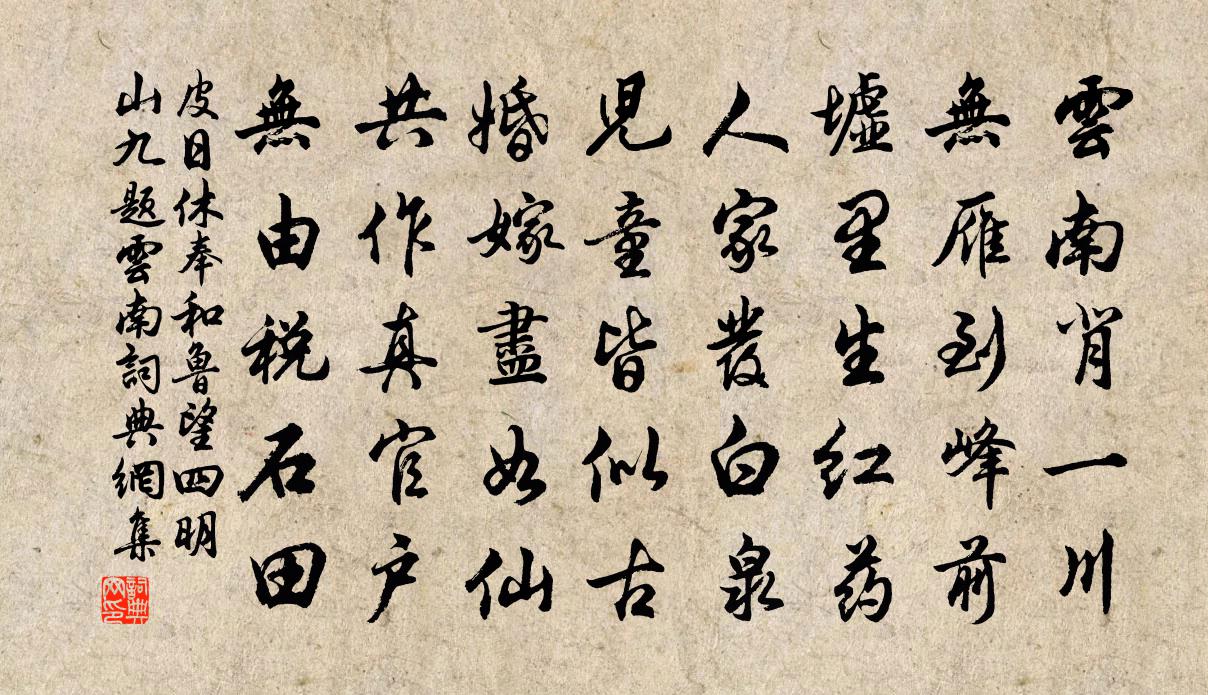 雲南背一川
無雁到峰前
墟里生红药
人家發白泉
児童皆似古
婚嫁盡如仙
共作真官户
無由税石田
皮日休奉和鲁望四明
山九题雲南詞典網集
詞典
网印